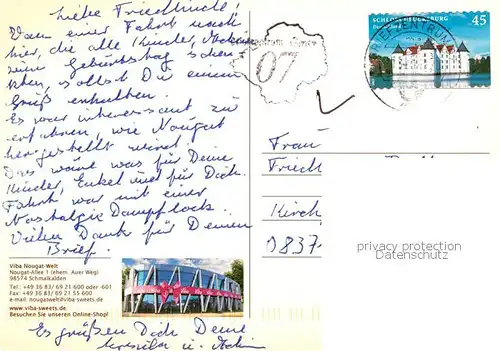 Liebe Friedlinde!
Von einer Fahrt nach
hier, die alle Kinder,
zum Geburtstag schen
kten, sollst Du einen
Gruß erhalten.
Es war interessant zu
erfahren, wie Nougat
hergestellt wird.
Das wäre was für Deine
Kinder, Enkel und für Dich.
Fahrt war mit einer
Nostalgie Dampflock.
Vielen Dank für Deinen
Brief.
Viba Nougat-Welt
Nougat-Allee 1 (ehem. Auer Weg)
98574 Schmalkalden
Tel.: +49 36 83/ 69 21-600 oder -601
Fax: +49 36 83/ 69 21 55 600
e-mail: nougatwelt@viba-sweets.de
www.viba-sweets.de
Besuchen Sie unseren Online-Shop!
Es grüßen Dich Deine
u.
BRIEFZENTRUM
07
SCHLOSS GLÜCKSBURG
45
Frau
Friedl
Kirch
0837
privacy protection
Datenschutz